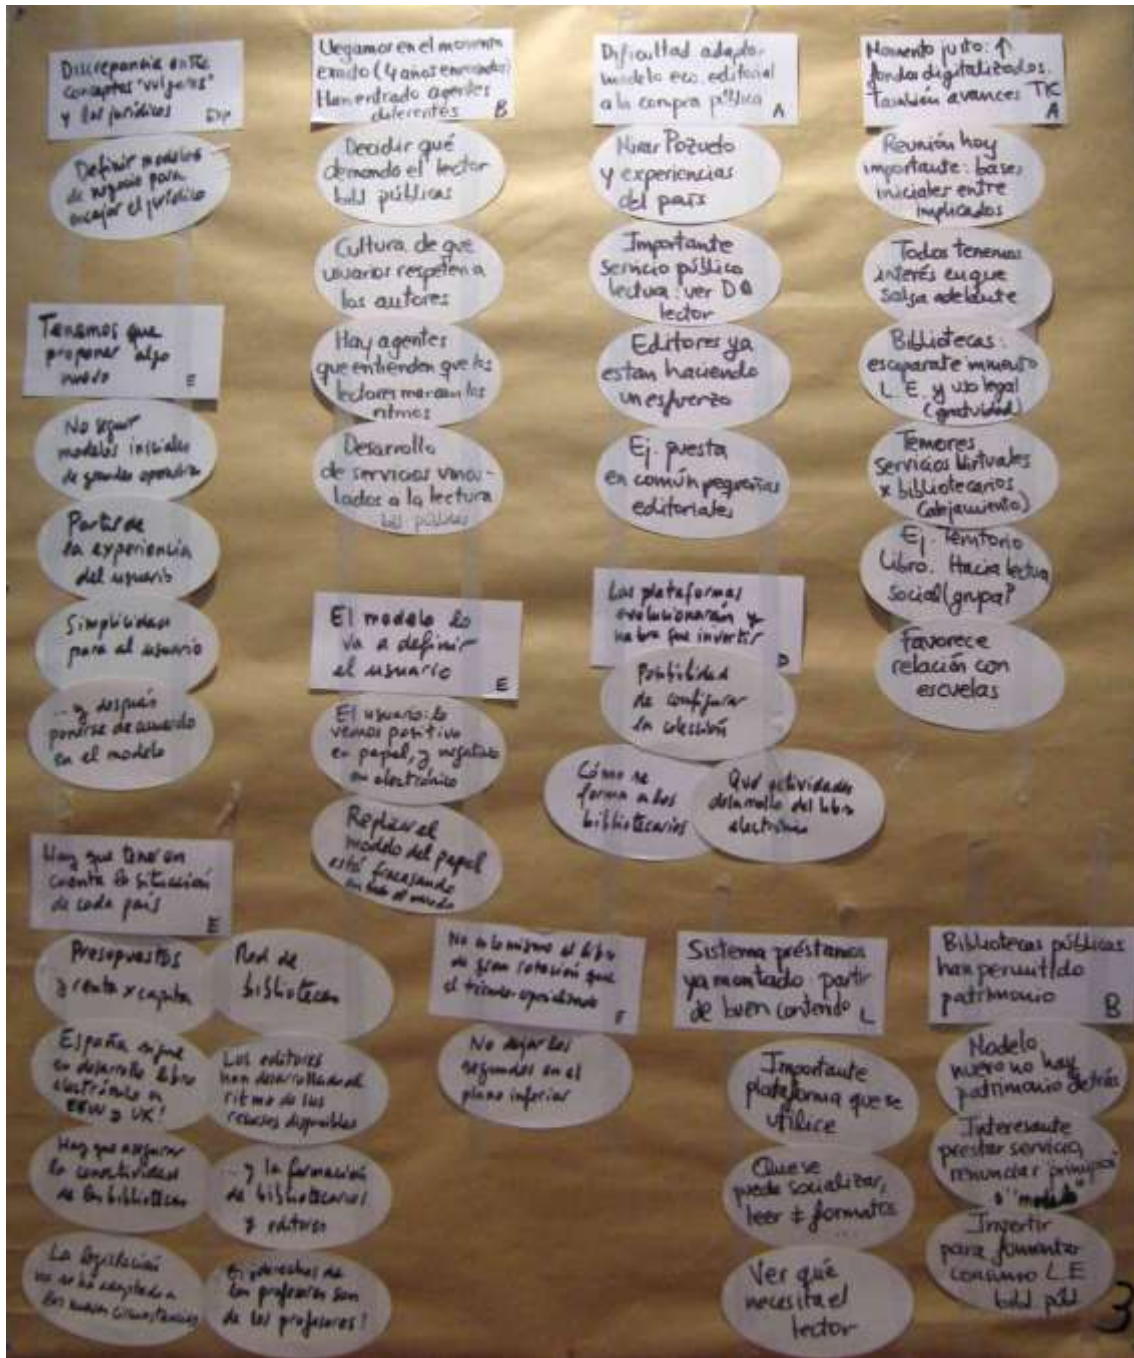 Discrepancia entre
conceptos "vulgares"
y los jurídicos
Exp
Definir modelos
de negocio para
encajar el jurídico
Tenemos que
proponer algo
nuevo
E
No seguir
modelos iniciales
de grandes
Partir de
la experiencia
del usuario
Simplicidad
para al usuario
... y después
ponerse de acuerdo
en el modelo
Hay que tener en
cuenta la situación
de cada país
E
Presupuestos
y renta x capita
España sigue
en desarrollo libro
electrónico a
EEUU y UK!
Hay que asegurar
la conectividad
de las bibliotecas
La legislación
no se ha adaptado a
las nuevas circunstancias
Red de
bibliotecas
Los editores
han desarrollado al
ritmo de los
recursos disponibles
... y la formación
de bibliotecarios
y editores
derechos de
los profesores son
de los profesores!
Llegamos en el momento
exacto (4 años
Han entrado agentes
diferentes
B
Decidir qué
demanda el lector
bibl públicas
Cultura de que
usuarios respeten a
los autores
Hay agentes
que entienden que los
lectores marcan los
ritmos
Desarrollo
de servicios vincu-
lados a la lectura
bibl públicas
El modelo lo
va a definir
el usuario
E
El usuario: lo
vemos positivo
en papel, y negativo
en electrónico
Replicar el
modelo del papel
está fracasando
en todo el mundo
No es lo mismo el libro
de gran rotación que
el
F
No dejar los
segundos en el
plano inferior
Dificultad adapta.
modelo eco. editorial
a la compra pública
A
Mirar Pozuelo
y experiencias
del país
Importante
servicio público
lectura: ver DQ
lector
Editores ya
estan haciendo
un esfuerzo
Ej. puesta
en común pequeñas
editoriales
Las plataformas
evolucionarán y
habra que invertir
D
Posibilidad
de configurar
la colección
Cómo se
forma a los
bibliotecarios
Qué actividades
desarrollo del libro
electrónico
Sistema préstamos
ya montado partir
de buen contenido
L
Importante
plataforma que se
utilice
Que se
puede socializar,
leer ≠ formatos...
Ver qué
necesita el
lector
Momento justo: ↑
fondos digitalizados.
También avances TIC
A
Reunión hoy
importante: bases
iniciales entre
implicados
Todos tenemos
interés en que
salga adelante
Bibliotecas:
escaparate
L.E. y uso legal
(gratuidad)
Temores
Servicios Virtuales
x bibliotecarios
(alejamiento)
Ej. Territorio
Libro. Hacia lectura
social (grupal)
Favorece
relación con
escuelas
Bibliotecas públicas
han permitido
patrimonio
B
Modelo
nuevo no hay
patrimonio detrás
Interesante
prestar servicio,
renunciar
a "modelo"
Invertir
para fomentar
consumo L.E
bibl púb
3